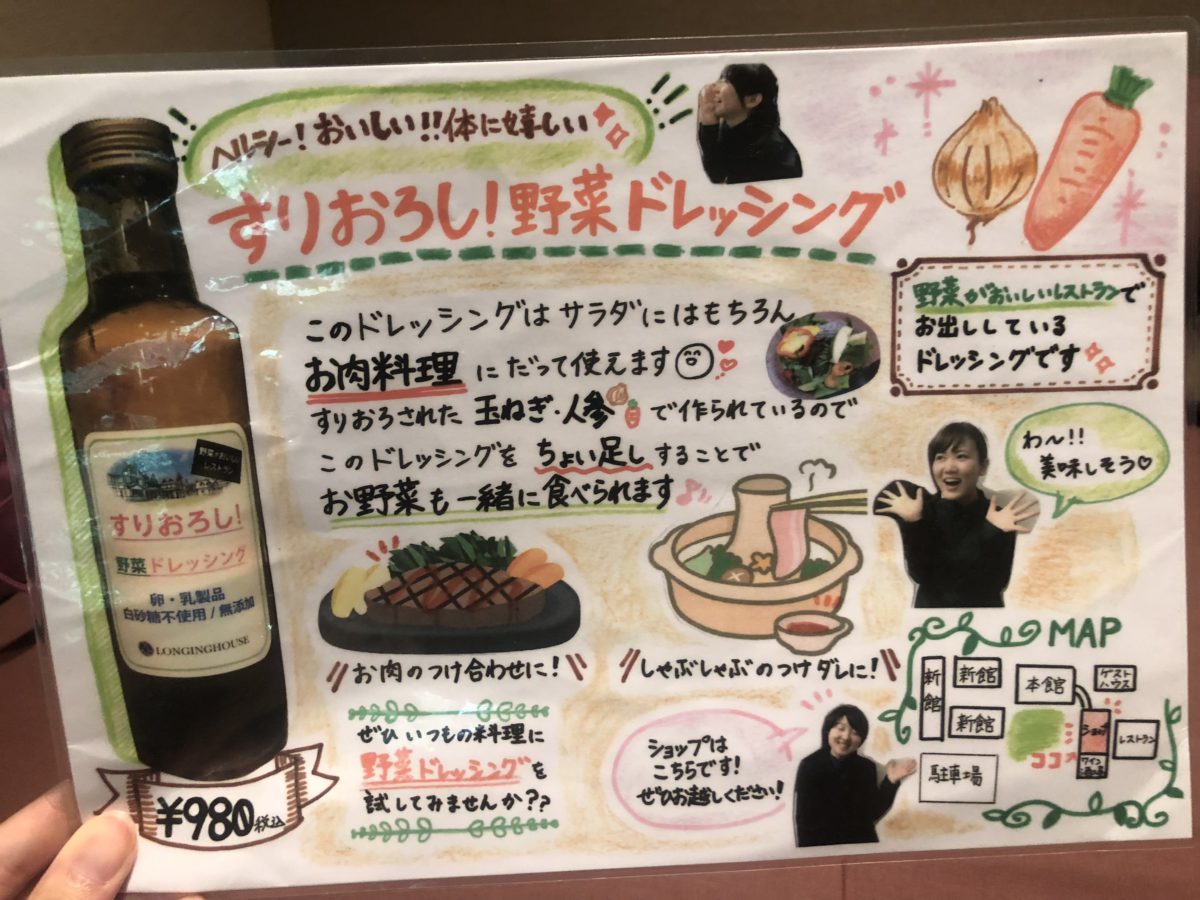 ヘルシー!おいしい!!体に嬉しい
すりおろし!野菜ドレッシング
このドレッシングはサラダにはもちろん
お肉料理にだって使えます
すりおろされた玉ねぎ・人参で作られているので
このドレッシングをちょい足しすることで
お野菜も一緒に食べられます♪
野菜がおいしいレストランで
お出ししている
ドレッシングです
わ〜!!
美味しそう♡
野菜がおいしい
レストラン
すりおろし!
野菜ドレッシング
卵・乳製品
白砂糖不使用/無添加
LONGINGHOUSE
¥980税込
お肉のつけ合わせに!
しゃぶしゃぶのつけダレに!
ぜひいつもの料理に
野菜ドレッシングを
試してみませんか??
ショップは
こちらです!
ぜひお越しください!
MAP
新館
新館
新館
本館
ゲスト
ハウス
ショップ
レストラン
ココ
ワイン
駐車場